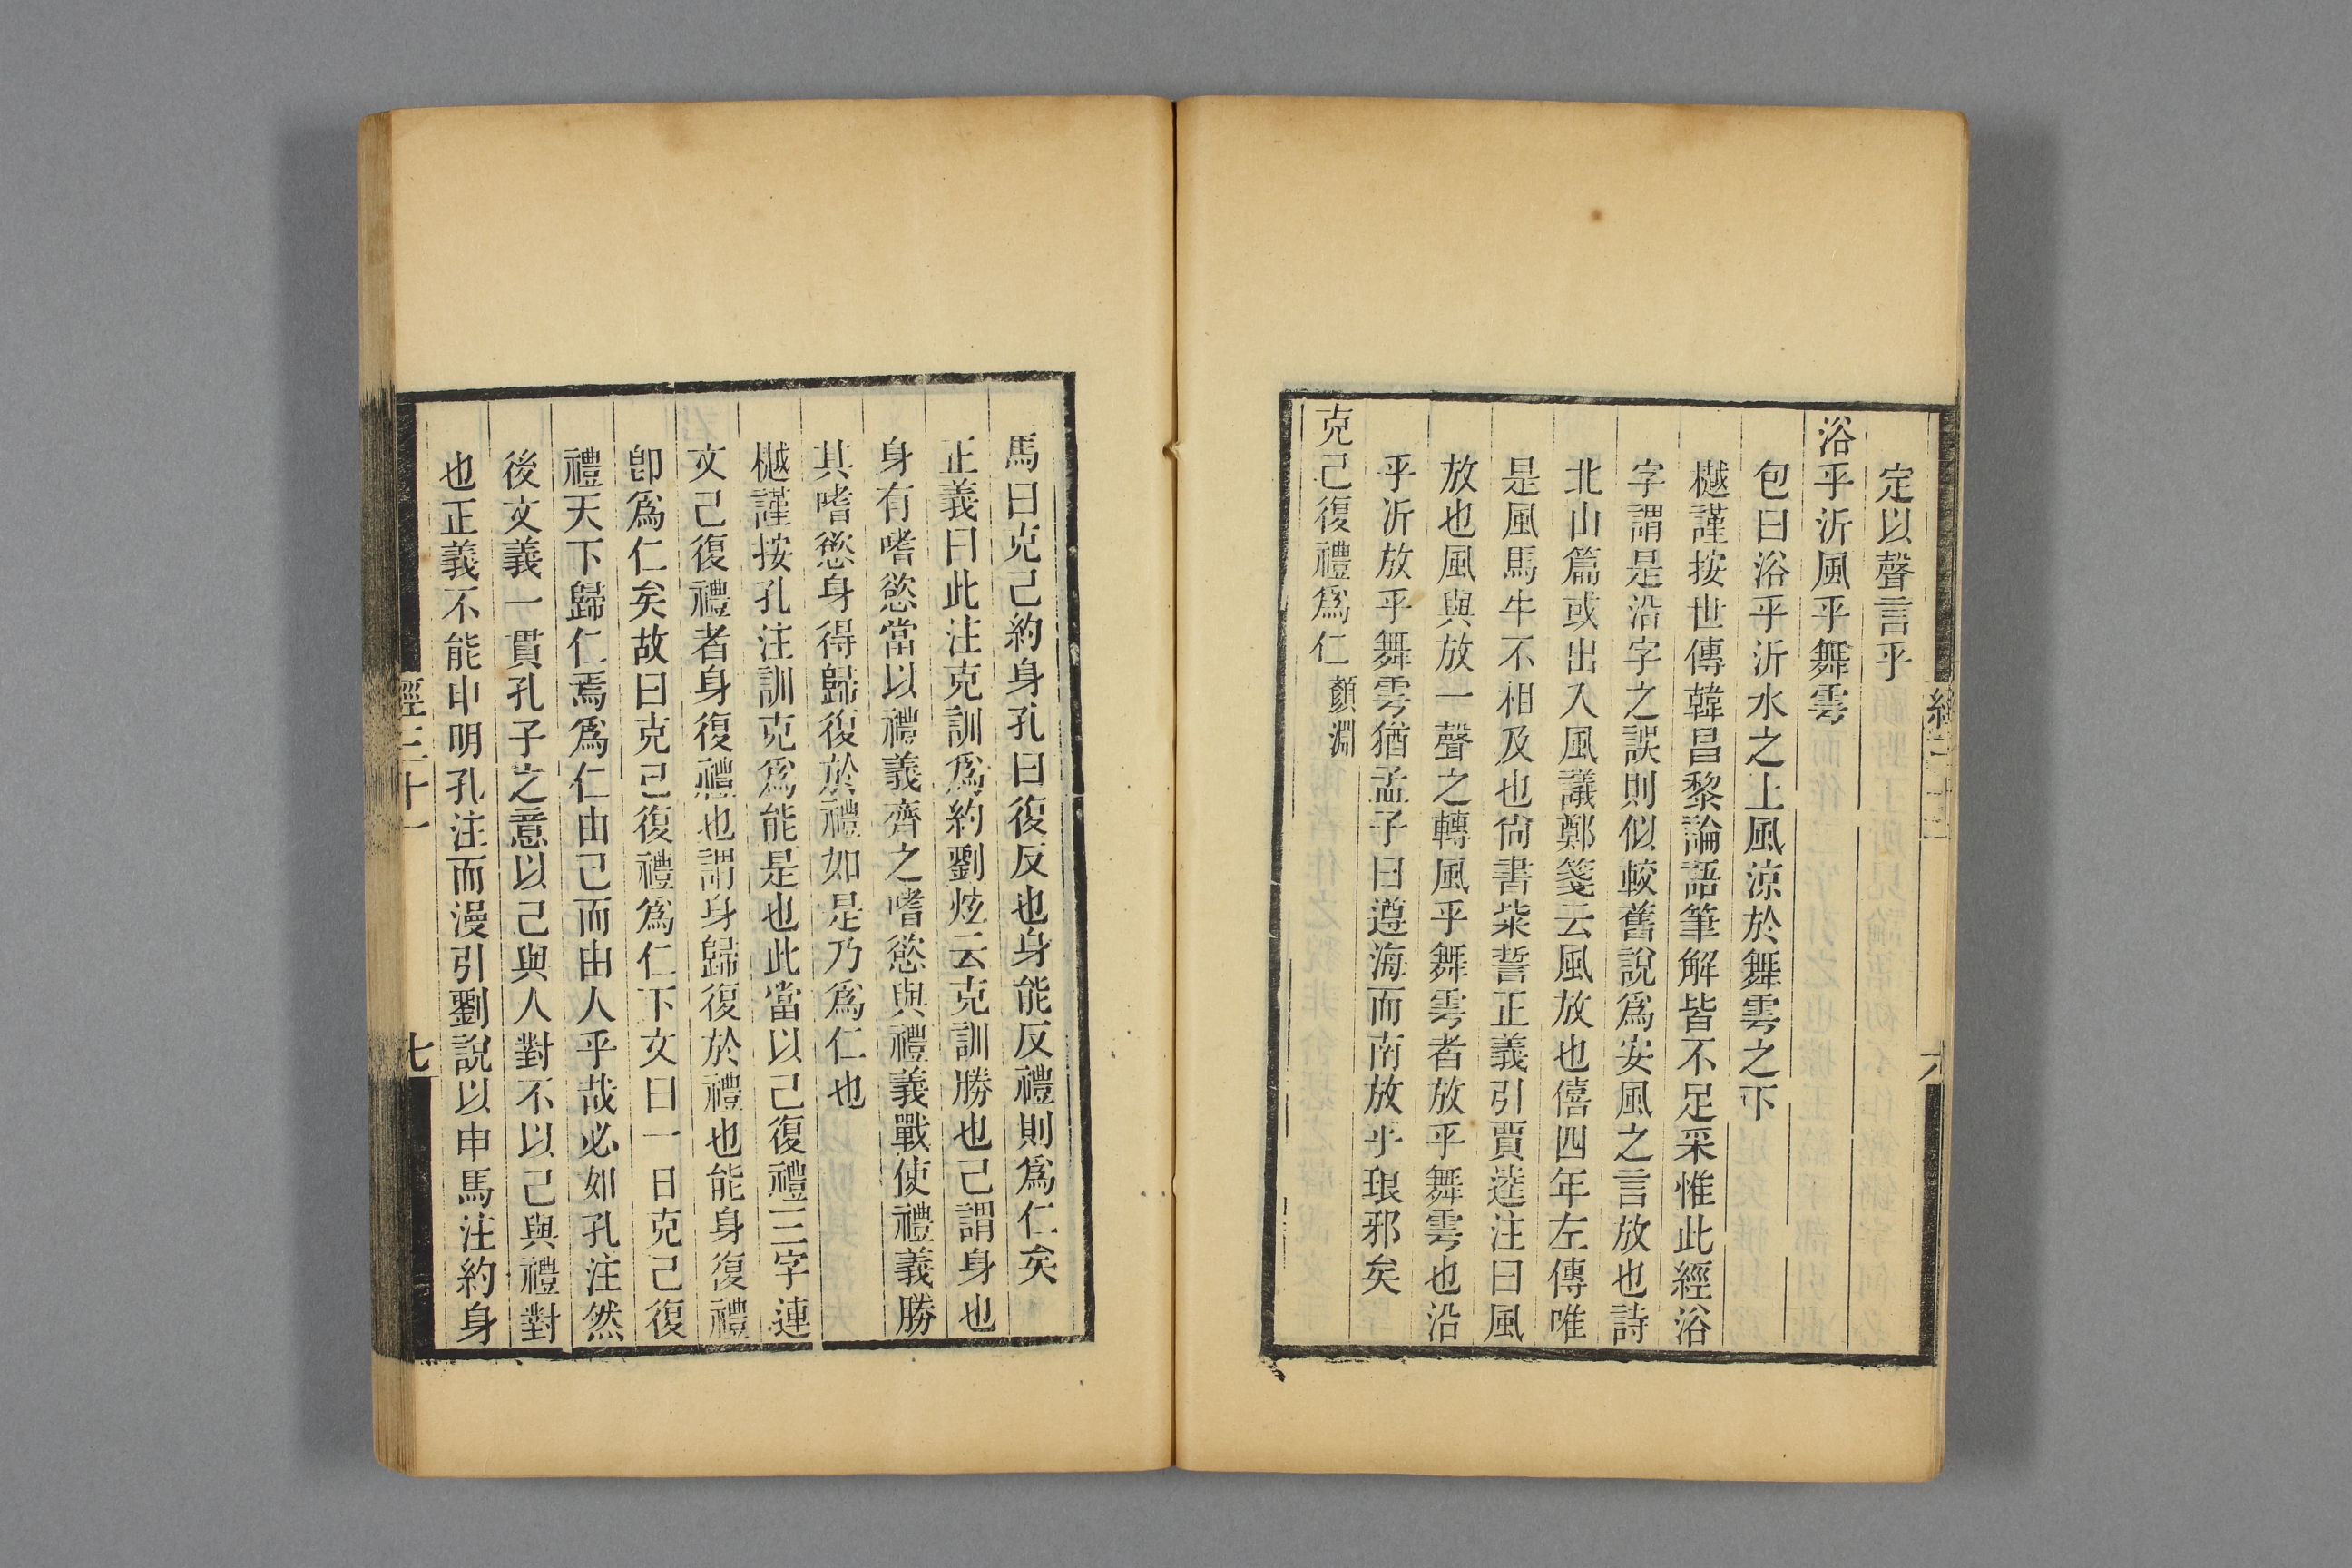 定以聲言乎
浴乎沂風乎舞雩
包曰浴乎沂水之上風涼於舞雩之下
樾謹按世傳韓昌黎論語筆解皆不足采惟此經浴
字謂是沿字之誤則似較舊說爲安風之言放也詩
北山篇或出入風議鄭箋云風放也僖四年左傳唯
是風馬牛不相及也尙書柴誓正義引賈逵注曰風
放也風與放一聲之轉風乎舞雩者放乎舞雩也沿
乎沂放乎舞雩猶孟子曰遵海而南放乎琅邪矣
克己復禮爲仁 顏淵
馬曰克己約身孔曰復反也身能反禮則爲仁矣
正義曰此注克訓爲約劉炫云克訓勝也己謂身也
身有嗜慾當以禮義齊之嗜慾與禮義戰使禮義勝
其嗜慾身得歸復於禮如是乃爲仁也
樾謹按孔注訓克爲能是也此當以己復禮三字連
文己復禮者身復禮也謂身歸復於禮也能身復禮
卽爲仁矣故曰克己復禮爲仁下文曰一日克己復
禮天下歸仁焉爲仁由己而由人乎哉必如孔注然
後文義一貫孔子之意以己與人對不以己與禮對
也正義不能申明孔注而漫引劉說以申馬注約身
經三十一
七